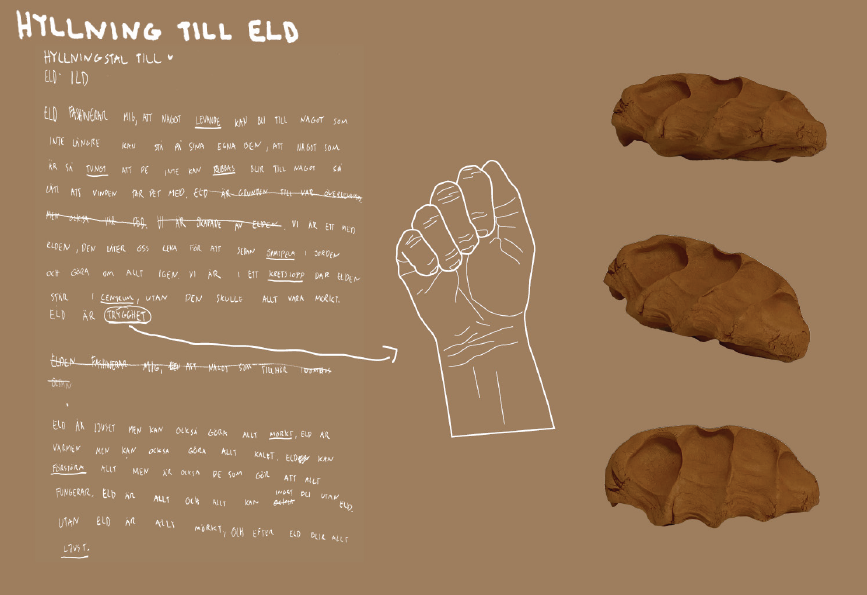 HYLLNING TILL ELD
HYLLNINGSTAL TILL
ELD ILD
ELD FASHINERAR MIG, ATT NÅGOT LEVANDE KAN BLI TILL NÅGOT SOM
INTE LÄNGRE KAN STÅ PÅ SINA EGNA BEN, ATT NÅGOT SOM
ÄR SÅ TUNGT ATT DE INTE KAN RUBBAS BLIR TILL NÅGOT SÅ
LÄTT ATT VINDEN TAR DET MED, ELD ÄR GRUNDEN TILL VÅR ÖVERLEVNAD
MEN OCKSÅ VÅR DÖD. VI ÄR SKAPADE AV ELDEN. VI ÄR ETT MED
ELDEN, DEN LÅTER OSS LEVA FÖR ATT SEDAN I JORDEN
OCH GÖRA OM ALLT IGEN. VI ÄR I ETT KRETSLOPP DÄR ELDEN
STÅR I CENTRUM, UTAN DEN SKULLE ALLT VARA MÖRKT.
ELD ÄR TRYGGHET
ELDEN FASHINERAR MIG, ATT NÅGOT SOM TILLHÖR
ELD ÄR LJUST MEN KAN OCKSÅ GÖRA ALLT MÖRKT, ELD ÄR
VÄRMEN MEN KAN OCKSÅ GÖRA ALLT KALLT. ELD KAN
FÖRSTÖRA ALLT MEN ÄR OCKSÅ DE SOM GÖR ATT ALLT
FUNGERAR. ELD ÄR ALLT OCH ALLT KAN INGET BLI UTAN ELD.
UTAN ELD ÄR ALLT MÖRKT, OCH EFTER ELD BLIR ALLT
LJUST.